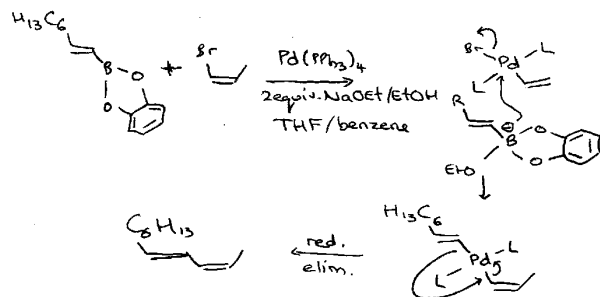 H13C6
B
O
O
+
Br
Pd(PPh3)4
2equiv. NaOEt/EtOH
THF/benzene
Br
Pd
L
L
R
⊖
B
O
O
EtO
H13C6
Pd
L
L
red.
elim.
C6H13